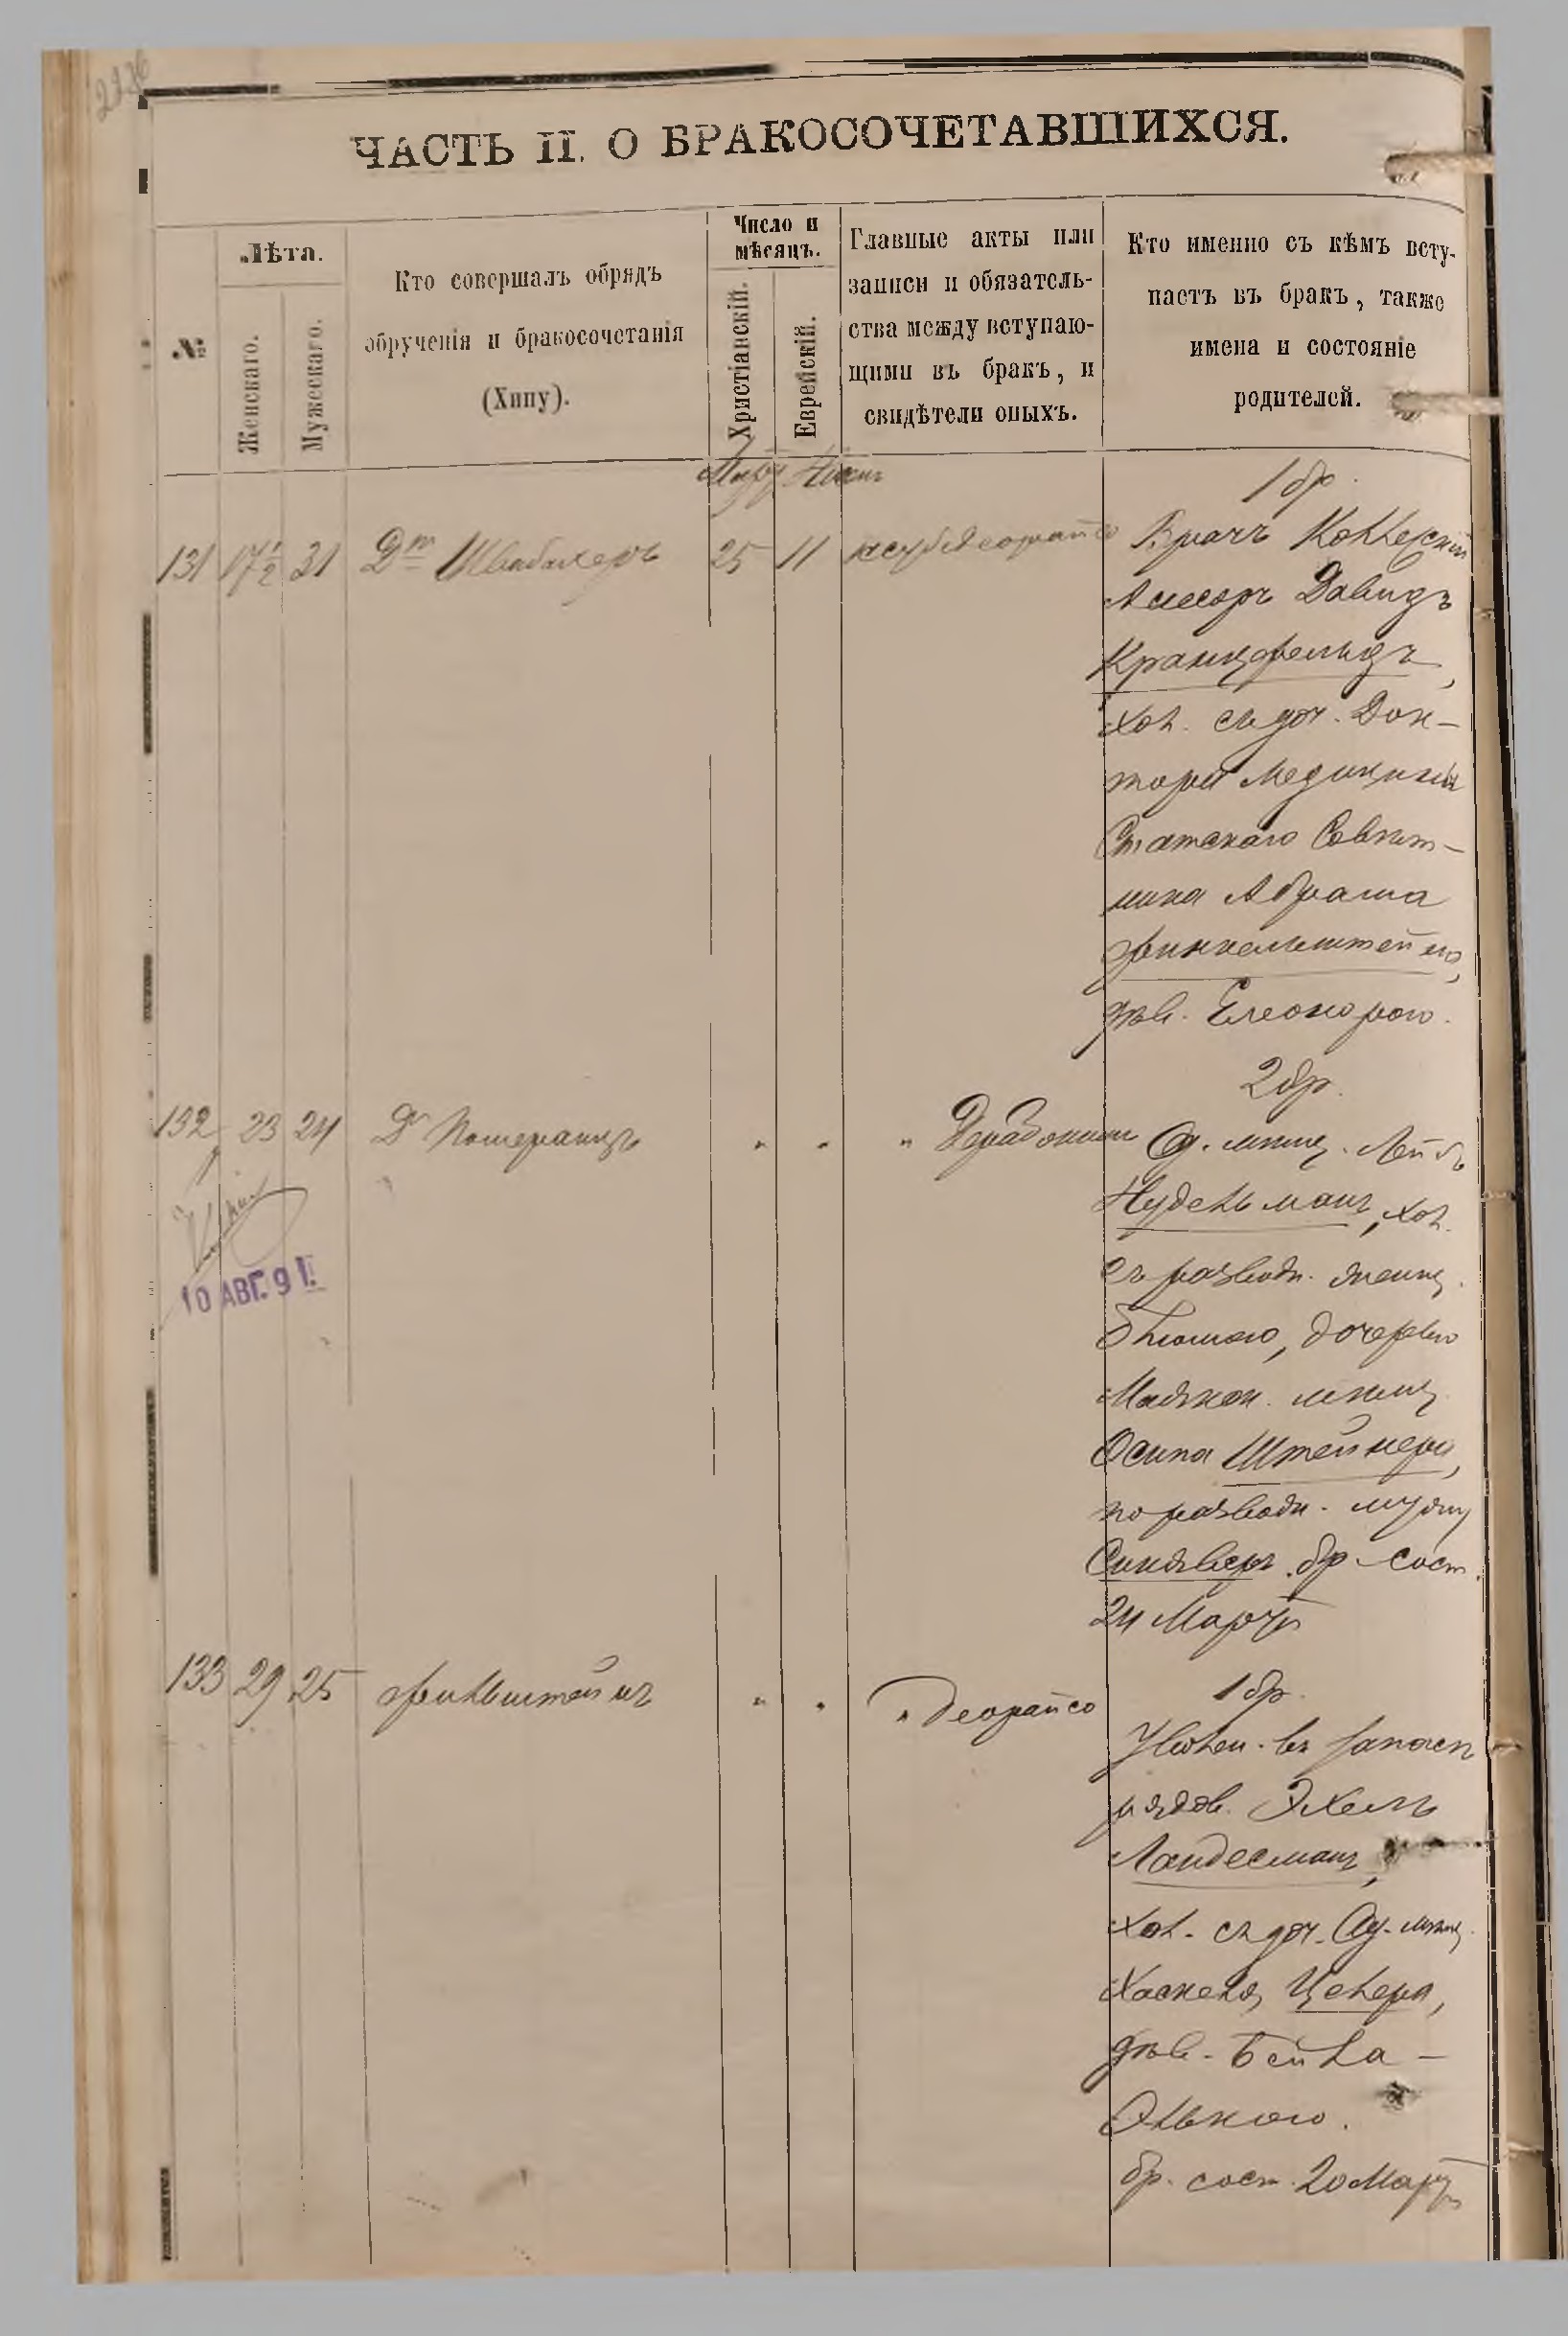 ЧАСТЬ II. О БРАКОСОЧЕТАВШИХСЯ.
№
Лѣта.
Женскаго.
Мужескаго.
Кто совершалъ обрядъ
обрученія и бракосочетанія
(Хипу).
Число и
мѣсяцъ.
Христіанскій.
Еврейскій.
Главные акты или
записи и обязатель-
ства между вступаю-
щими въ бракъ, и
свидѣтели оныхъ.
Кто именно съ кѣмъ всту-
паетъ въ бракъ, также
имена и состояніе
родителей.
131 17 1/2 31 Dr Швабахеръ 25 11
1 бр.
Врачъ Коллежскій
Ассесоръ Давидъ
Кранцфельдъ,
хол. съ доч. Док-
тора Медицины
Статскаго Совѣт-
ника Абрама
Финкельштейна,
дѣв. Елеонорою.
132 23 24 Dr Померанцъ " " "
10 АВГ. 91.
2 бр.
Од. мѣщ. Лейбъ
Нудельманъ, хол.
съ разводн. женщ.
Блюмою, дочерью
мѣщ.
Осипа Штейнера,
по разводн. мужу
бр. сост.
24 Марта
133 29 25 Финкельштейнъ " " "
1 бр.
Уволен. въ запасъ
рядов. Эхель
Ландесманъ,
хол. съ доч. Од. мѣщ.
Хаскеля Целера,
дѣв. Бейла-
Элькою.
бр. сост. 20 Марта